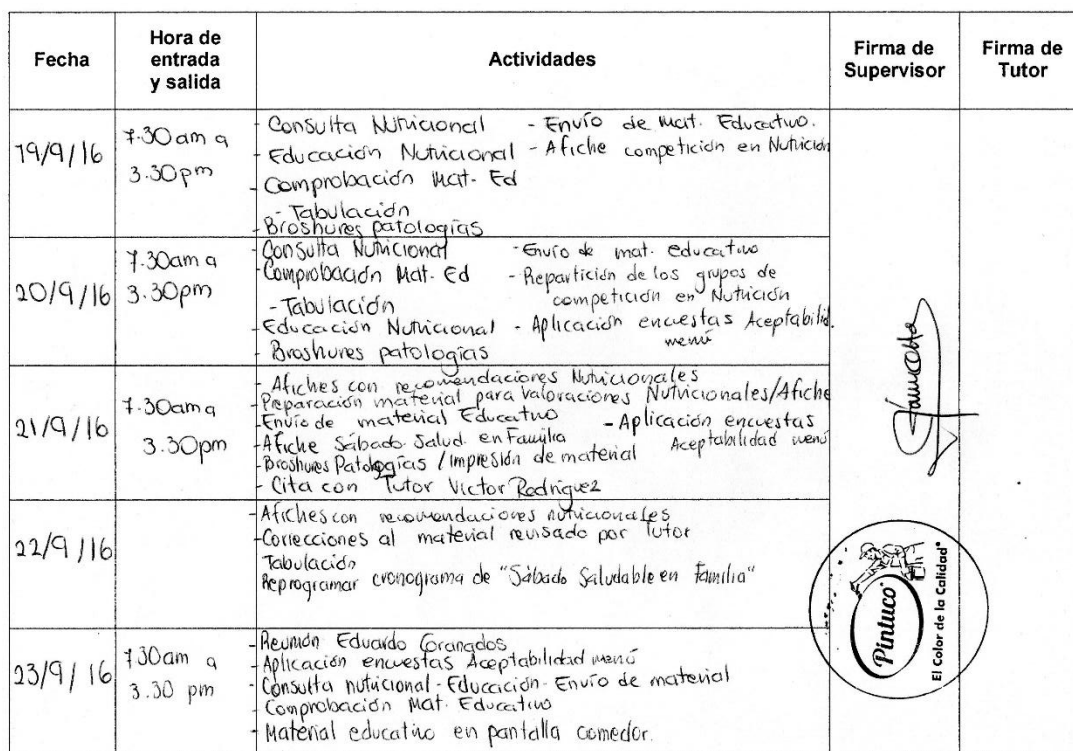 Fecha
Hora de
entrada
y salida
Actividades
Firma de
Supervisor
Firma de
Tutor
19/9/16
7.30am a
3.30pm
- Consulta Nutricional - Envío de mat. Educativo.
- Educación Nutricional - Afiche competición en Nutrición
- Comprobación Mat. Ed
- Tabulación
- Broshures patologías
20/9/16
7.30am a
3.30pm
- Consulta Nutricional - Envío de mat. educativo
- Comprobación Mat. Ed - Repartición de los grupos de
competición en Nutrición
- Tabulación
- Educación Nutricional - Aplicación encuestas Aceptabilid.
menú
- Broshures patologías
21/9/16
7.30am a
3.30pm
- Afiches con recomendaciones Nutricionales
- Preparación material para Valoraciones Nutricionales/Afiche
- Envío de material Educativo - Aplicación encuestas
- Afiche Sábado Salud. en Familia Aceptabilidad menú
- Broshures Patologías / Impresión de material
- Cita con Tutor Victor Rodriguez
22/9/16
- Afiches con recomendaciones nutricionales
- Correcciones al material revisado por Tutor
Tabulación
Reprogramar cronograma de "Sábado Saludable en Familia"
23/9/16
730am a
3.30 pm
- Reunión Eduardo Granados
- Aplicación encuestas Aceptabilidad menú
- Consulta nutricional - Educación - Envío de material
- Comprobación Mat. Educativo
- Material educativo en pantalla comedor.
Pintuco
El Color de la Calidad